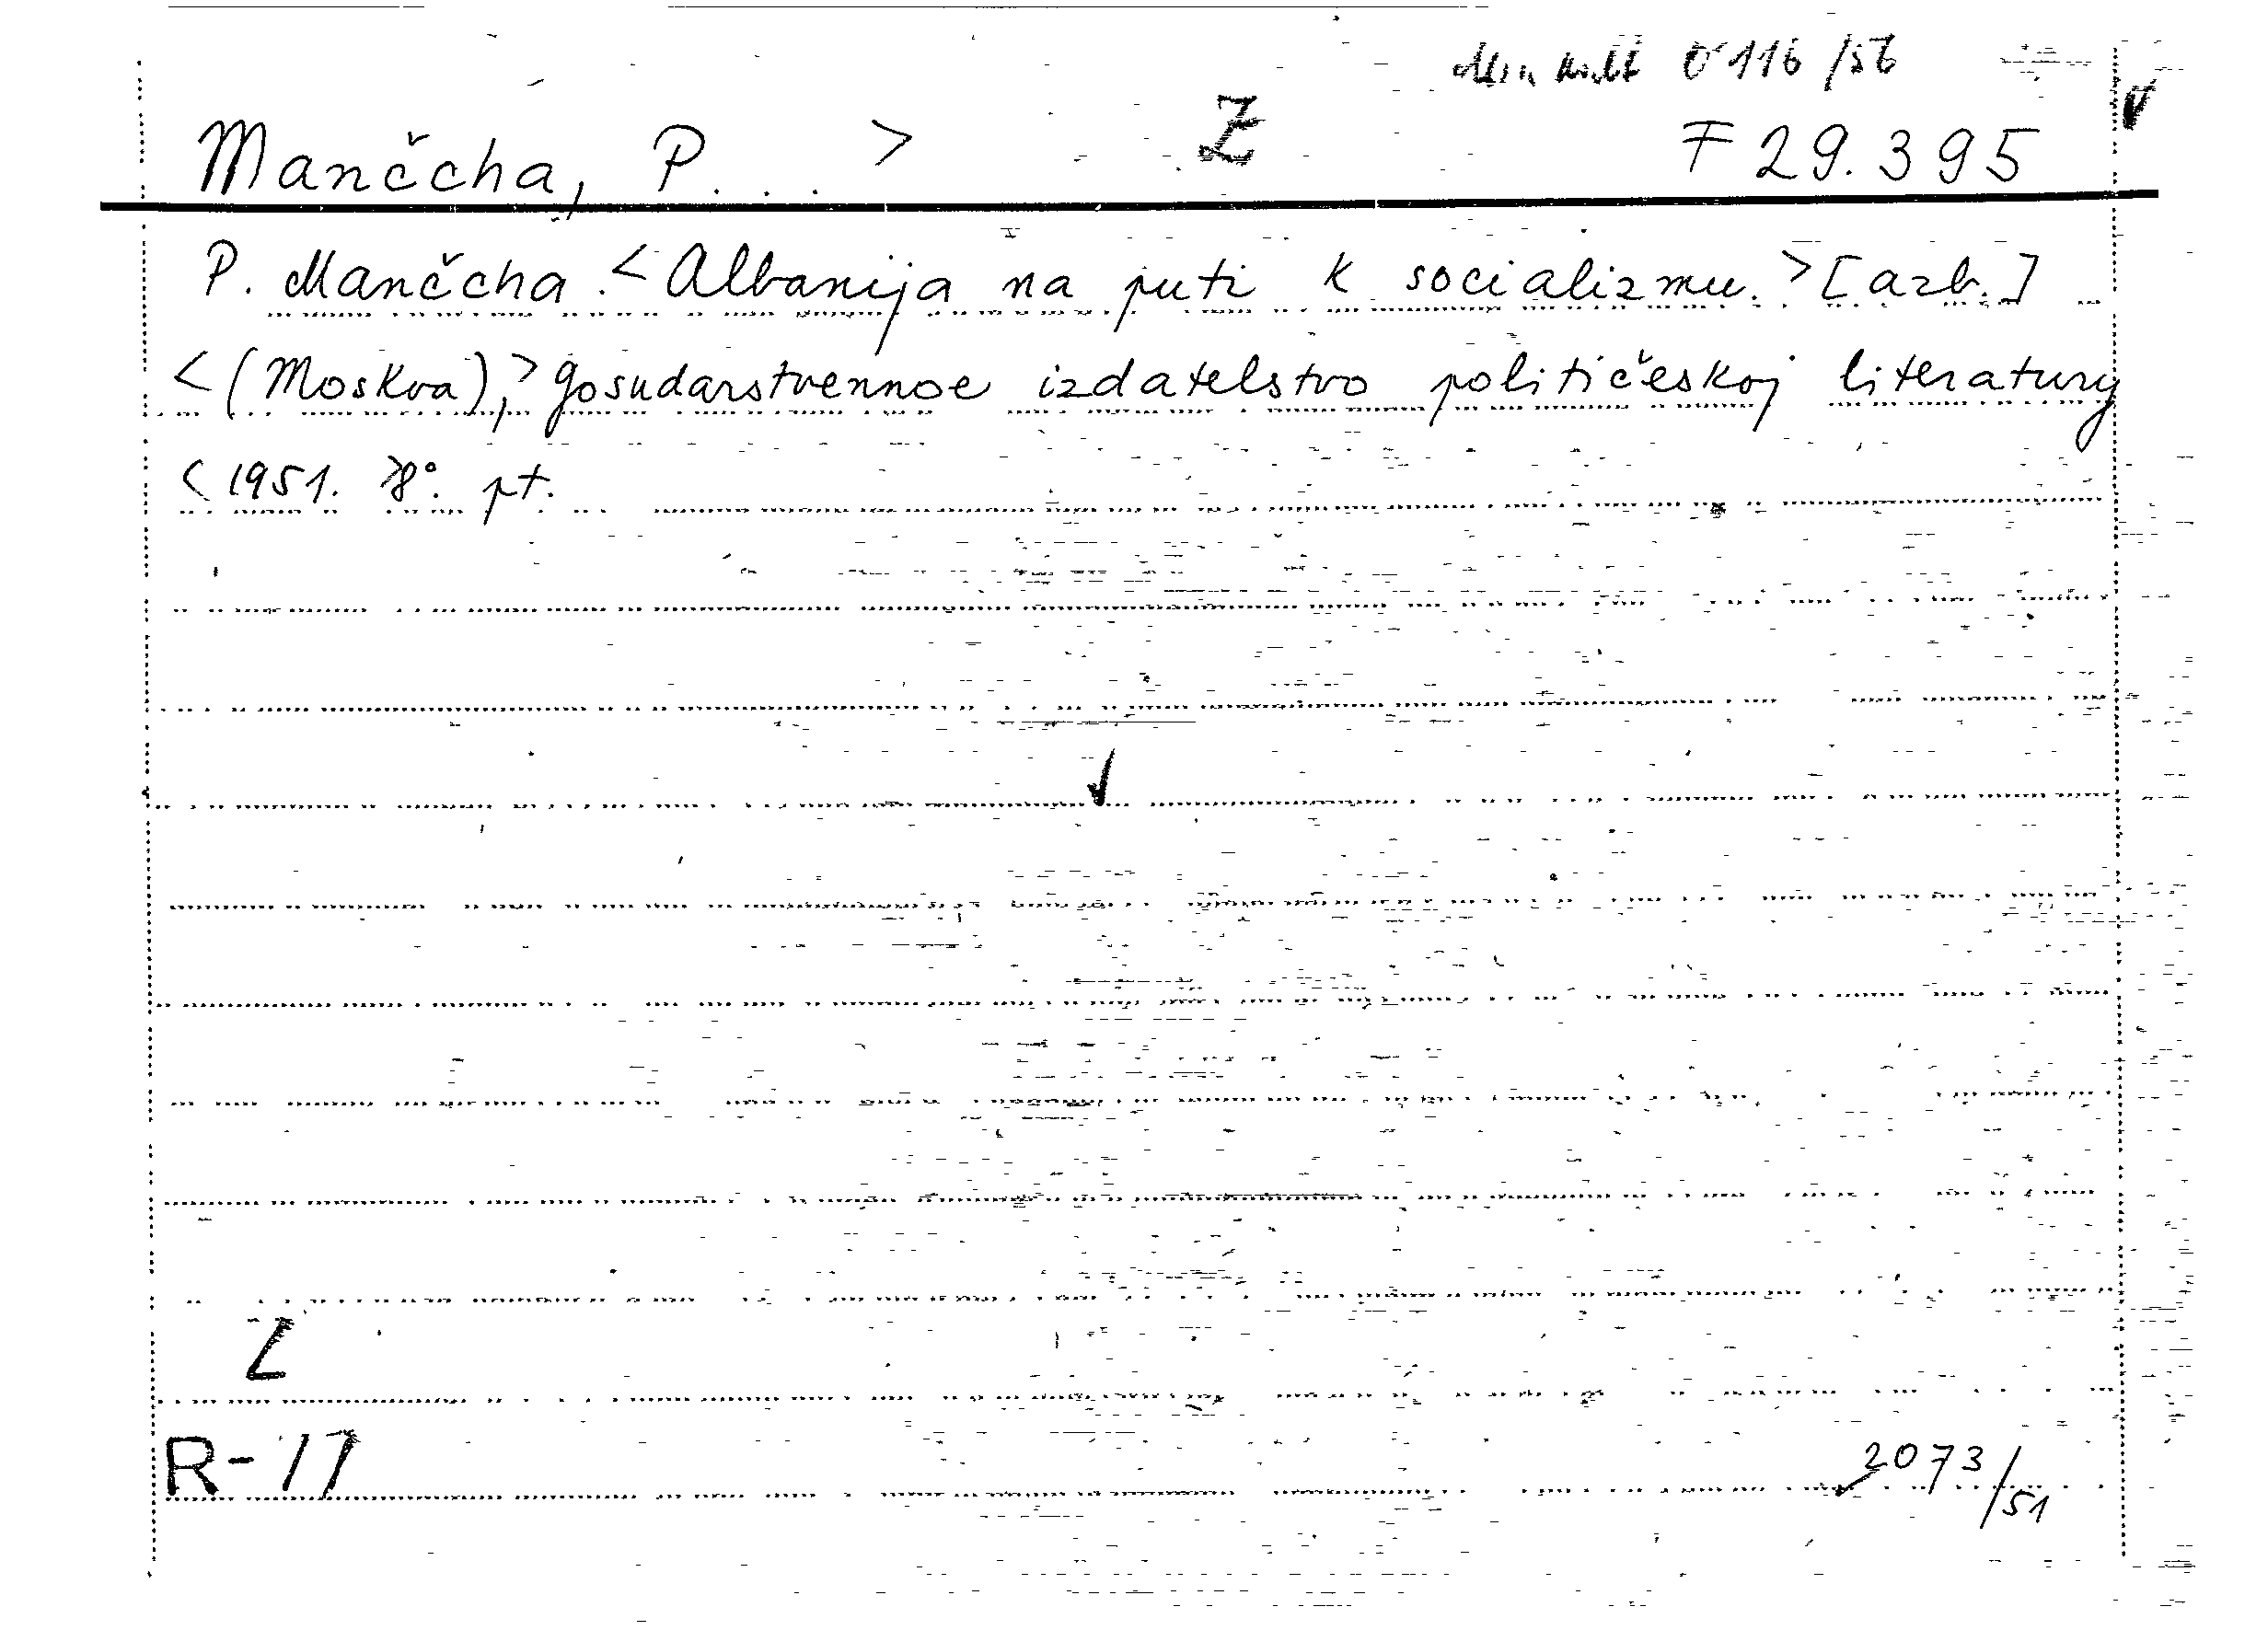 0116/56
Mančcha, P... > Z F 29.395
P. Mančcha. < Albanija na puti k socializmu. > [azb.]
< (Moskva), > Gosudarstvennoe izdatelstvo političeskoj literatury
< 1951. > 8°. pt.
Z
R-17
2073/51